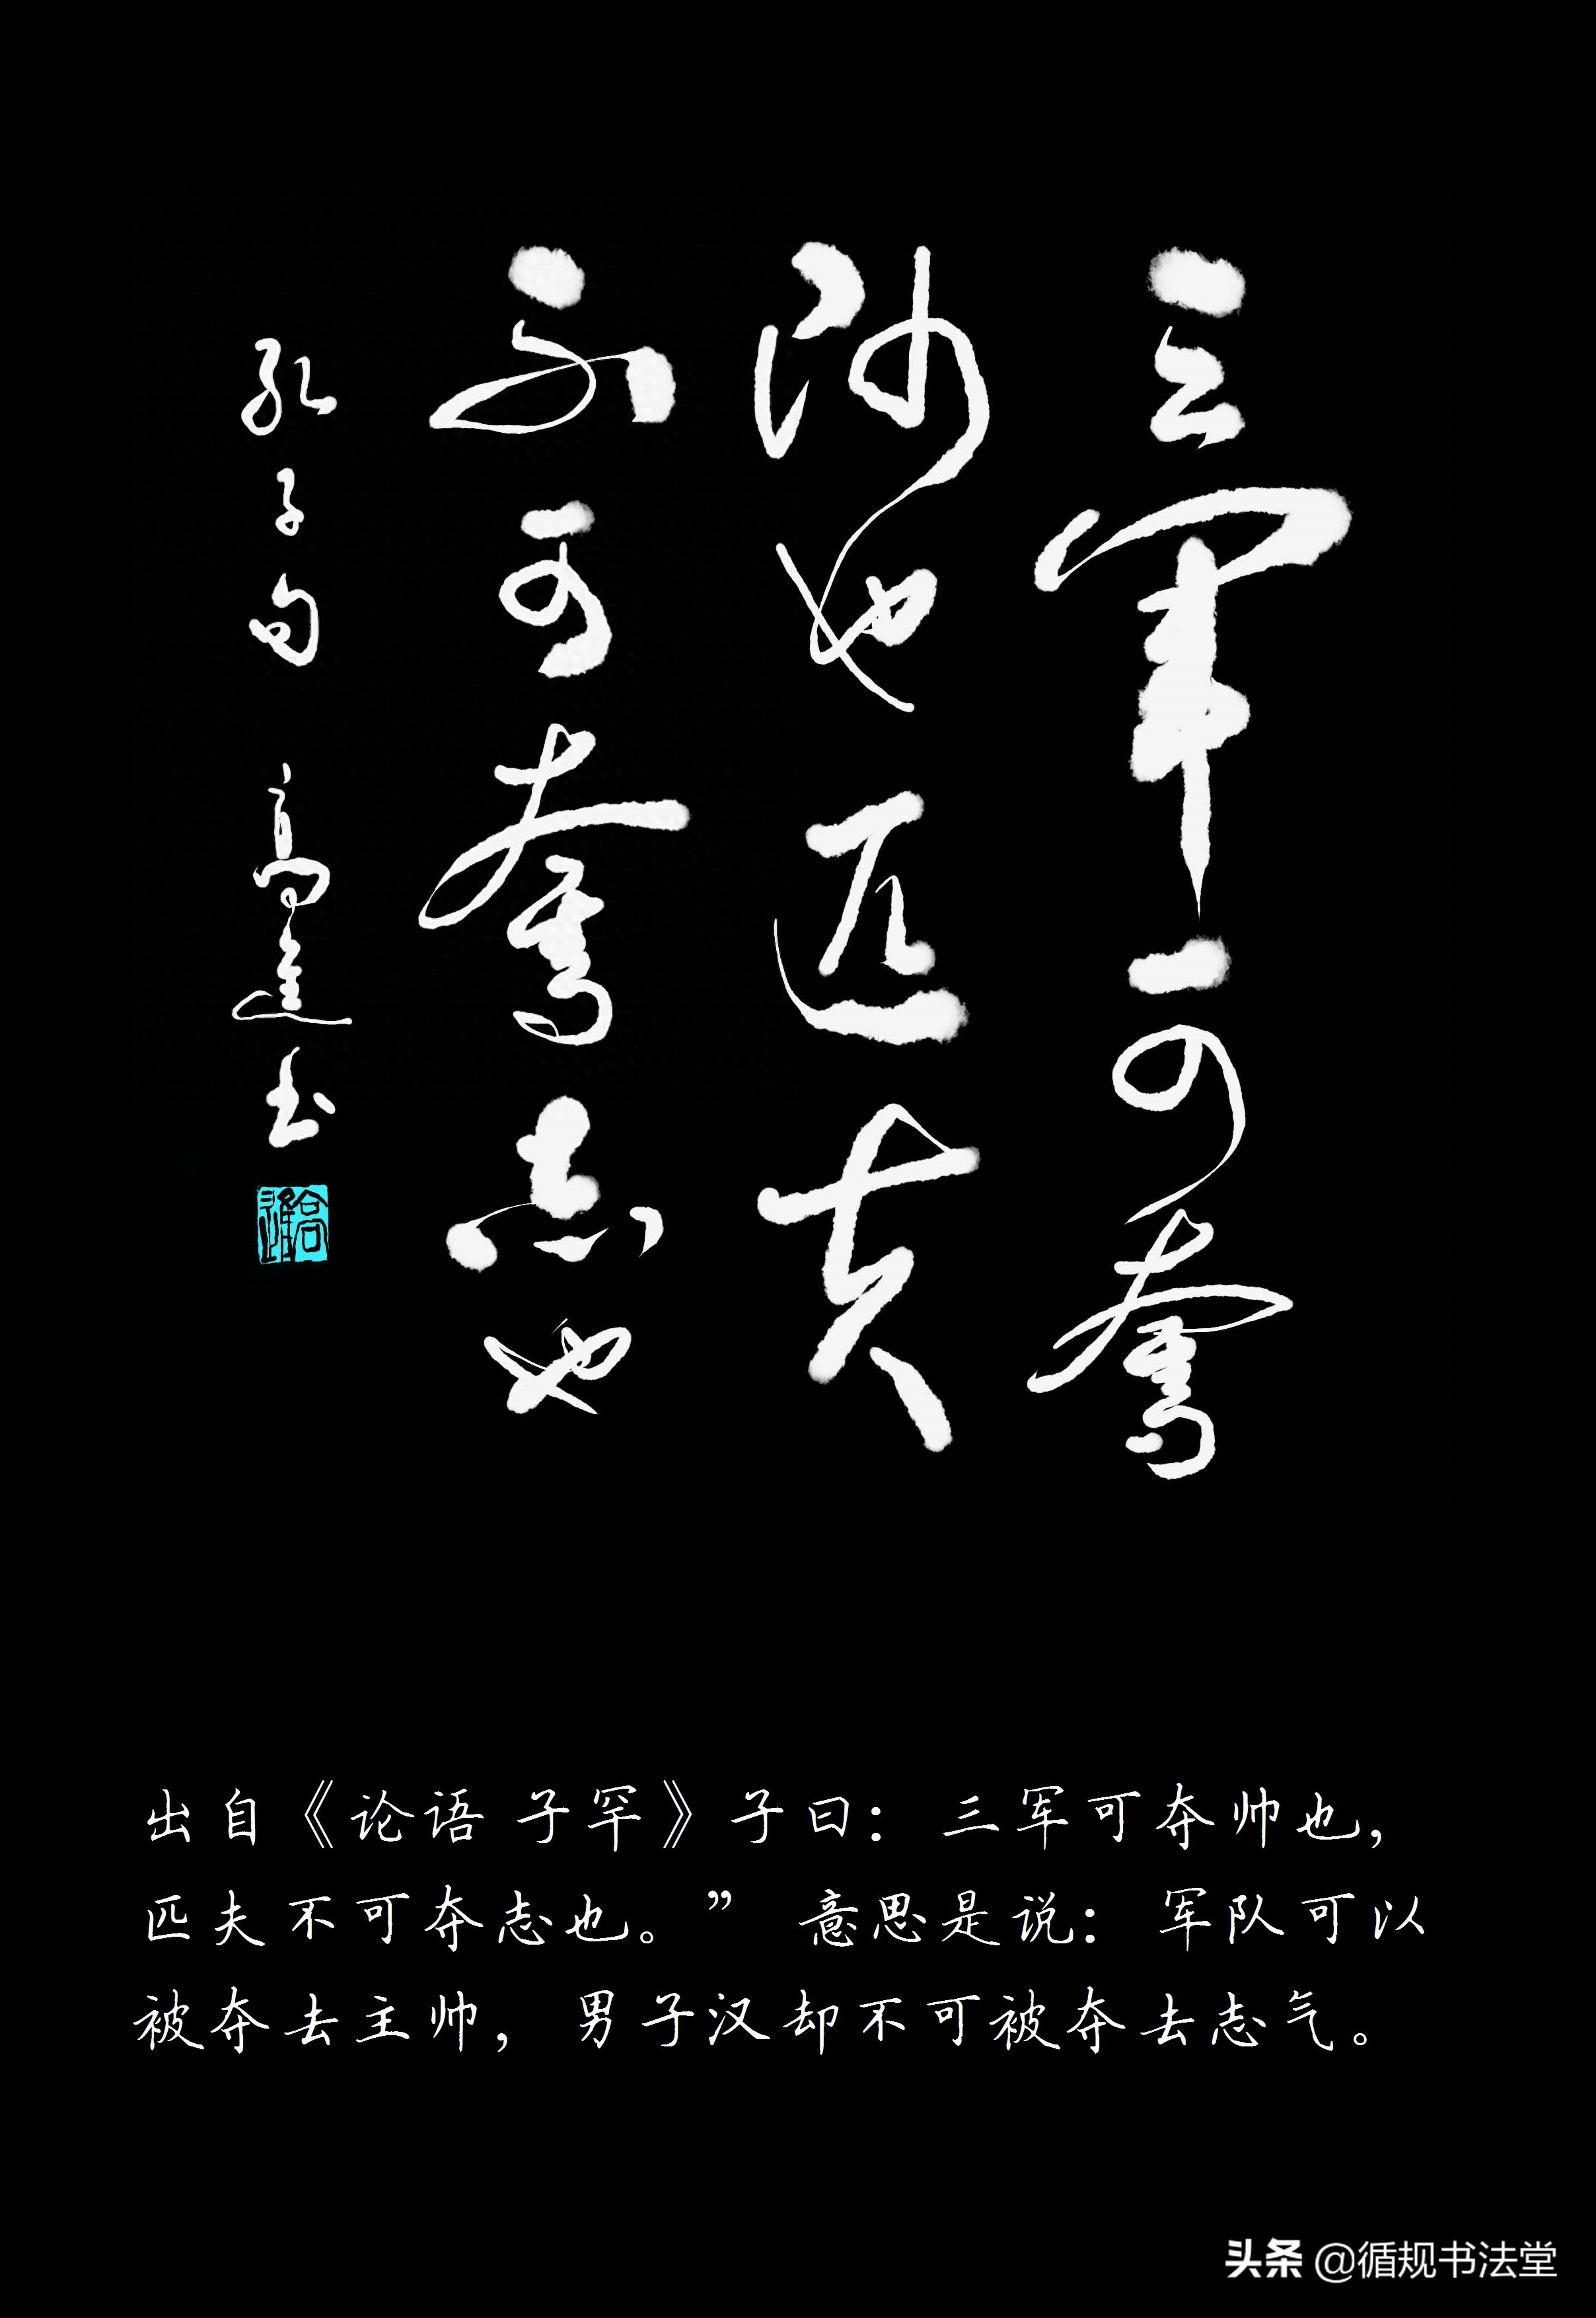 三军可奪
帅也匹夫
不可奪志也
孔子句 高建书
出自《论语 子罕》子曰：三军可夺帅也，
匹夫不可夺志也。” 意思是说：军队可以
被夺去主帅，男子汉却不可被夺去志气。
头条 @循规书法堂